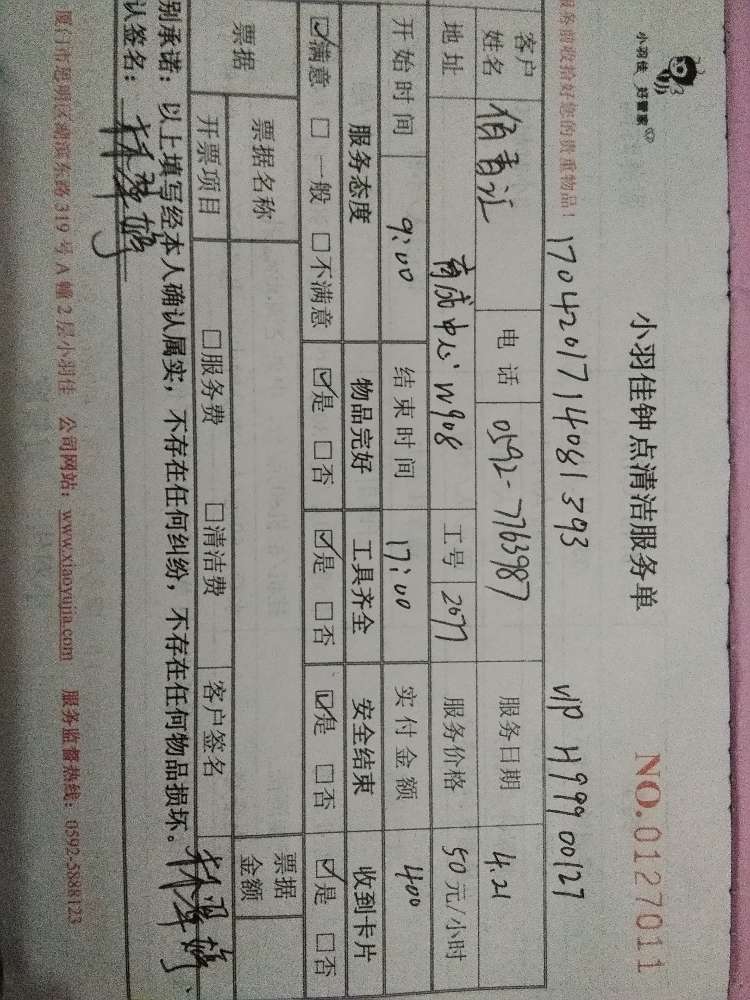 小羽佳 好管家
服务前收拾好您的贵重物品！
小羽佳钟点清洁服务单
NO.0127011
1704201714081393
VIP H99900127
客户姓名 佰香汇 电话 0592-7763987 服务日期 4.21
地址 育成中心W908 工号 2077 服务价格 50元/小时
开始时间 9:00 结束时间 17:00 实付金额 400
服务态度 物品完好 工具齐全 安全结束 收到卡片
☑满意 □一般 □不满意 ☑是 □否 ☑是 □否 ☑是 □否 ☑是 □否
票据 票据名称 票据金额
开票项目 □服务费 □清洁费 客户签名
别承诺：以上填写经本人确认属实，不存在任何纠纷，不存在任何物品损坏。
认签名：
厦门市思明区湖滨东路319号A幢2层小羽佳 公司网站：www.xiaoyujia.com 服务监督热线：0592-5888123